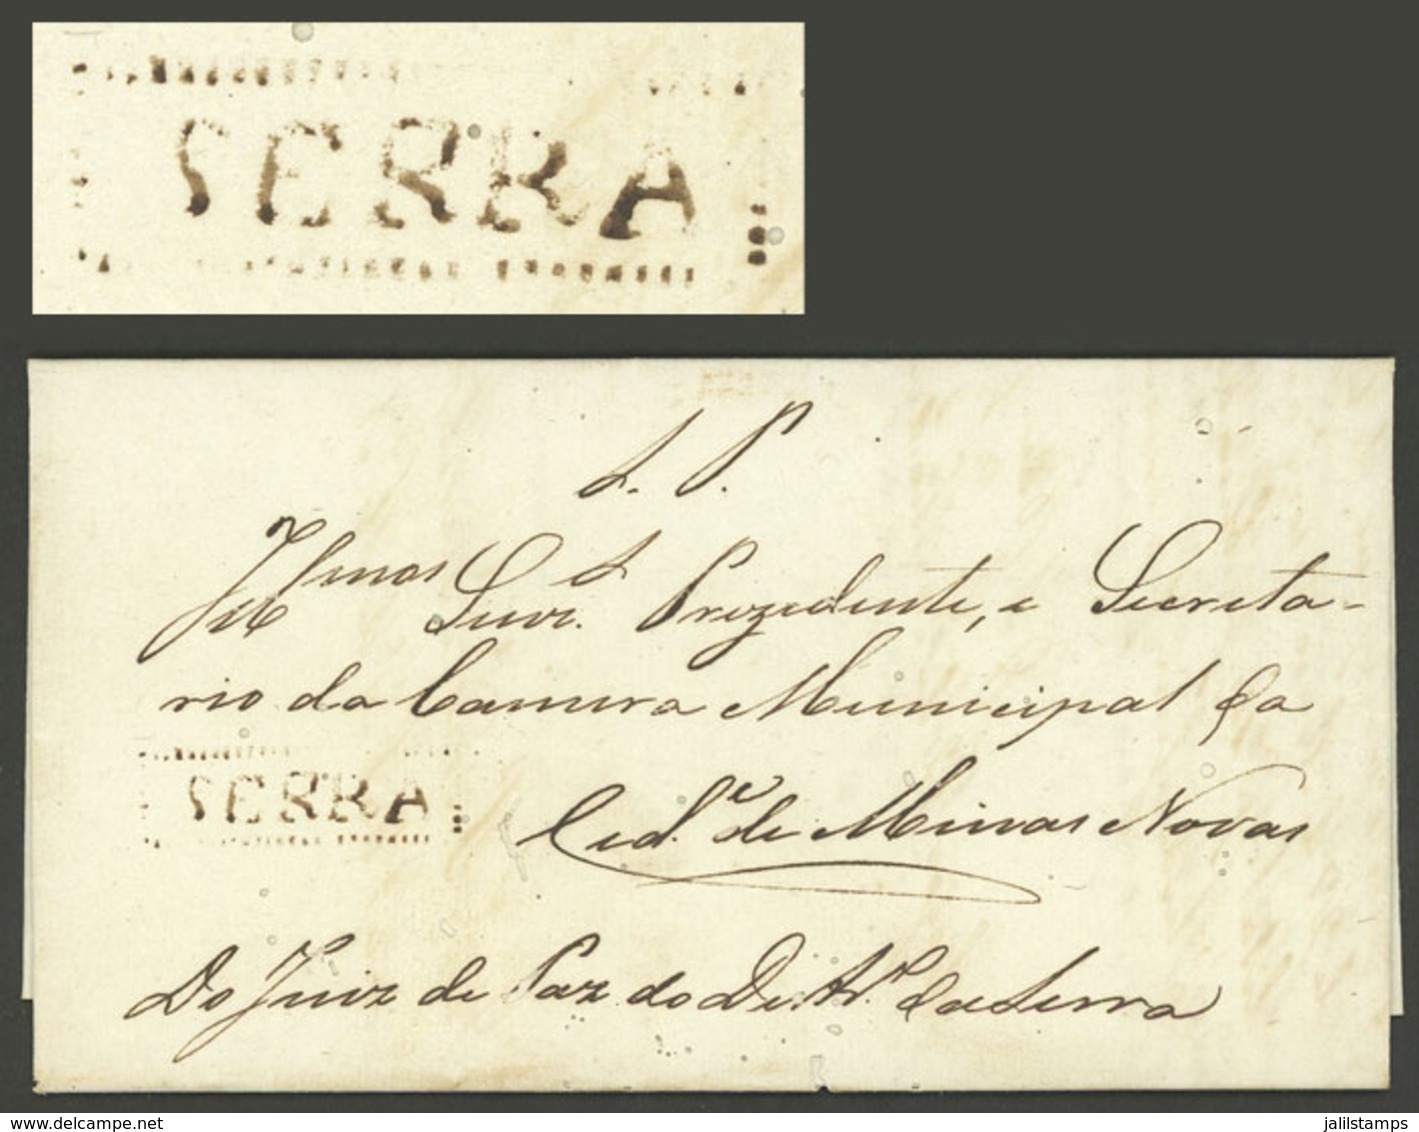 SERRA
S. P.
Illmos Snr.es Prezidente, e Secreta-
rio da Camera Municipal da
SERRA
Cid.e de Minas Novas
Do Juiz de Paz do Distr.o da Serra
www.delcampe.net
jalilstamps